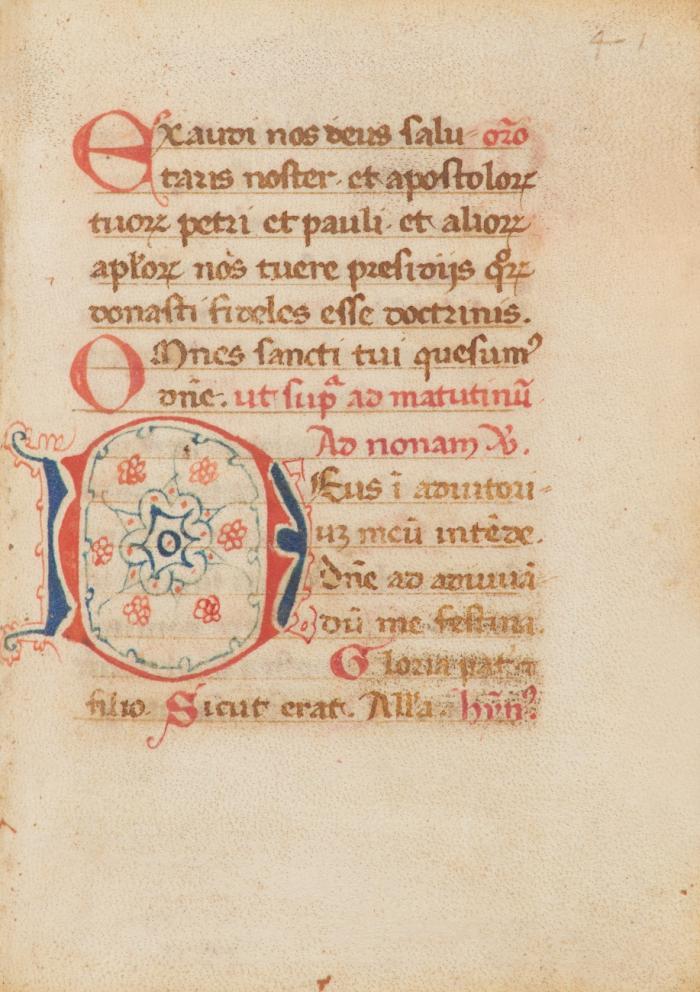 4 1
Exaudi nos deus salu oro͞
taris noster. et apostoloꝝ
tuoꝝ petri et pauli. et alioꝝ
apl'oꝝ nos tuere presidijs qͦꝝ
donasti fideles esse doctrinis.
OMnes sancti tui quesum᾽
dn͞e. ut supᵃ ad matutinū
Ad nonam ℣.
DEus ī adiutori-
uʒ meū intēde.
Dn͞e ad adiuuā
dū me festina.
Gloria patri
filio. Sicut erat. All'a. hȳn᾽